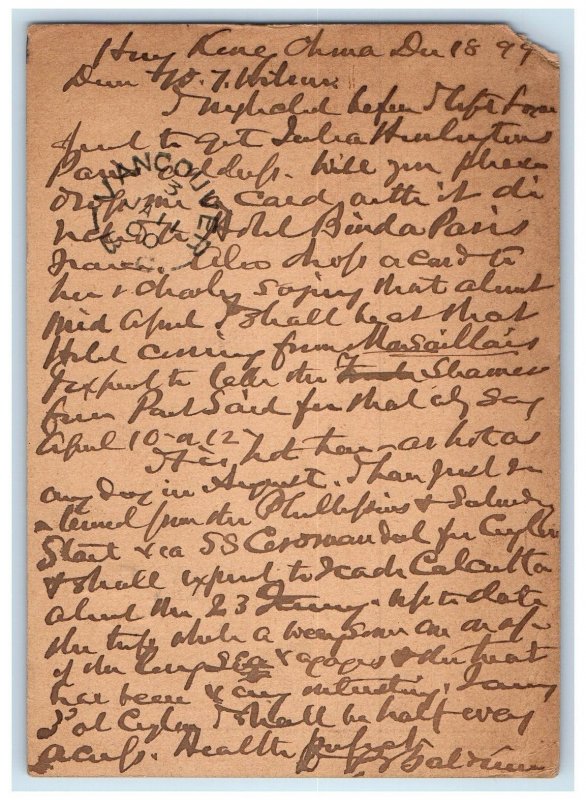 Hong Kong China Dec 18 99
Dear W. J. Wilson
I neglected before I left home
just to get Julia
Paris address. Will you please
drop me a card with it di
Hotel Binda Paris
France. Also drop a card to
her & Charley saying that about
mid April I shall be at that
Hotel coming from Marsaillais
I expect to take the Steamer
from Port Said for that city say
April 10 or 12
It is hot here - as hot as
any day in August. I have just re
turned from the Phillipins & Saturday
Start via SS Coromandal for Ceylon
& shall expect to reach Calcutta
about the 23 up to date
the trip while a weary some one on a/c
of the long sea voyages & the heat
has been very interesting.
at Ceylon I shall be half way
across. Health perfect
Baldwin
VANCOUVER
B.C.